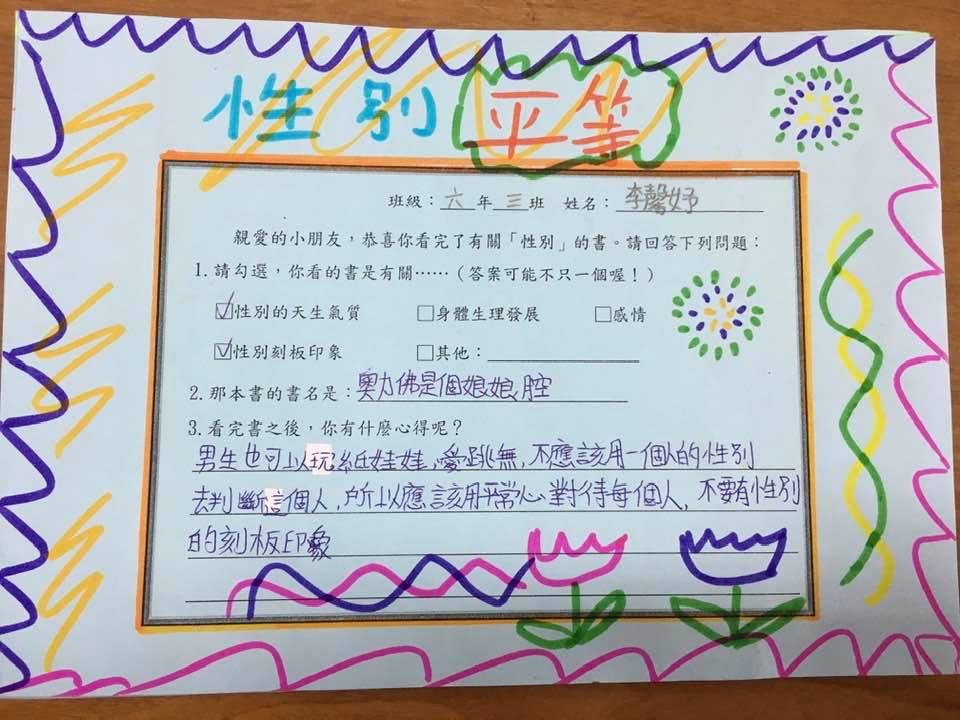 性別平等
班級：六年三班 姓名：李馨妤
親愛的小朋友，恭喜你看完了有關「性別」的書。請回答下列問題：
1.請勾選，你看的書是有關⋯⋯（答案可能不只一個喔！）
☑性別的天生氣質 □身體生理發展 □感情
☑性別刻板印象 □其他：
2.那本書的書名是：奧力佛是個娘娘腔
3.看完書之後，你有什麼心得呢？
男生也可以玩紙娃娃、愛跳無，不應該用一個人的性別
去判斷這個人，所以應該用平常心對待每個人，不要有性別
的刻板印象